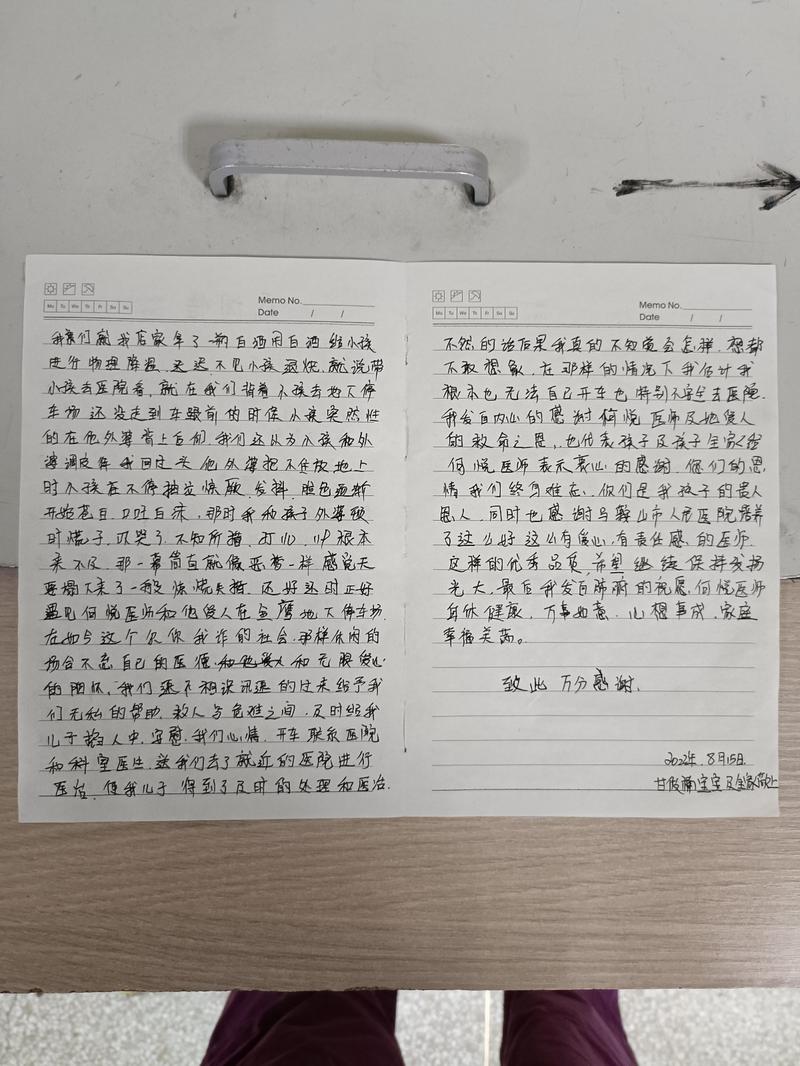 Memo No.
Mo Tu We Th Fr Sa Su
Date / /
我们就找店家拿了一瓶白酒用白酒给小孩
进行物理降温,迟迟不见小孩退烧,就说带
小孩去医院看,就在我们背着小孩去地下停
车场还没走到车跟前的时候小孩突然性
的在他外婆背上后仰,我们还以为小孩和外
婆调皮等我回过头他外婆把不住放地上
时小孩在不停抽搐惊厥,发抖,脸色逐渐
开始苍白,口吐白沫,那时我和孩子外婆顿
时慌了,吓哭了,不知所措,打120根本
来不及,那一幕简直就像恶梦一样感觉天
要塌下来了一般惊慌失措,还好这时正好
遇见何悦医师和他爱人在金鹰地下停车场
在如今这个尔你我诈的社会,那样休闲的
场合不忘自己的医德,和无限爱心
的胸怀,我们素不相识迅速的过来给予我
们无私的帮助,救人与危难之间,及时给我
儿子掐人中,安慰我们心情,开车联系医院
和科室医生,送我们去了就近的医院进行
医治,使我儿子得到了及时的处理和医治.
Memo No.
Mo Tu We Th Fr Sa Su
Date / /
不然的话后果我真的不知道会怎样,想都
不敢想象,在那样的情况下我估计我
根本也无法自己开车也特别不安全去医院.
我发自内心的感谢何悦医师及她爱人
的救命之恩,也代表孩子及孩子全家给
何悦医师表示衷心的感谢,你们的恩
情我们终身难忘,你们是我孩子的贵人
恩人,同时也感谢马鞍山市人民医院培养
了这么好这么有爱心,有责任感,的医师.
这样的优秀品质,希望继续保持发扬
光大,最后我发自肺腑的祝愿,何悦医师
身体健康,万事如意,心想事成,家庭
幸福美满。
致此 万分感谢.
2022年.8月15日.
宝宝及全家敬上